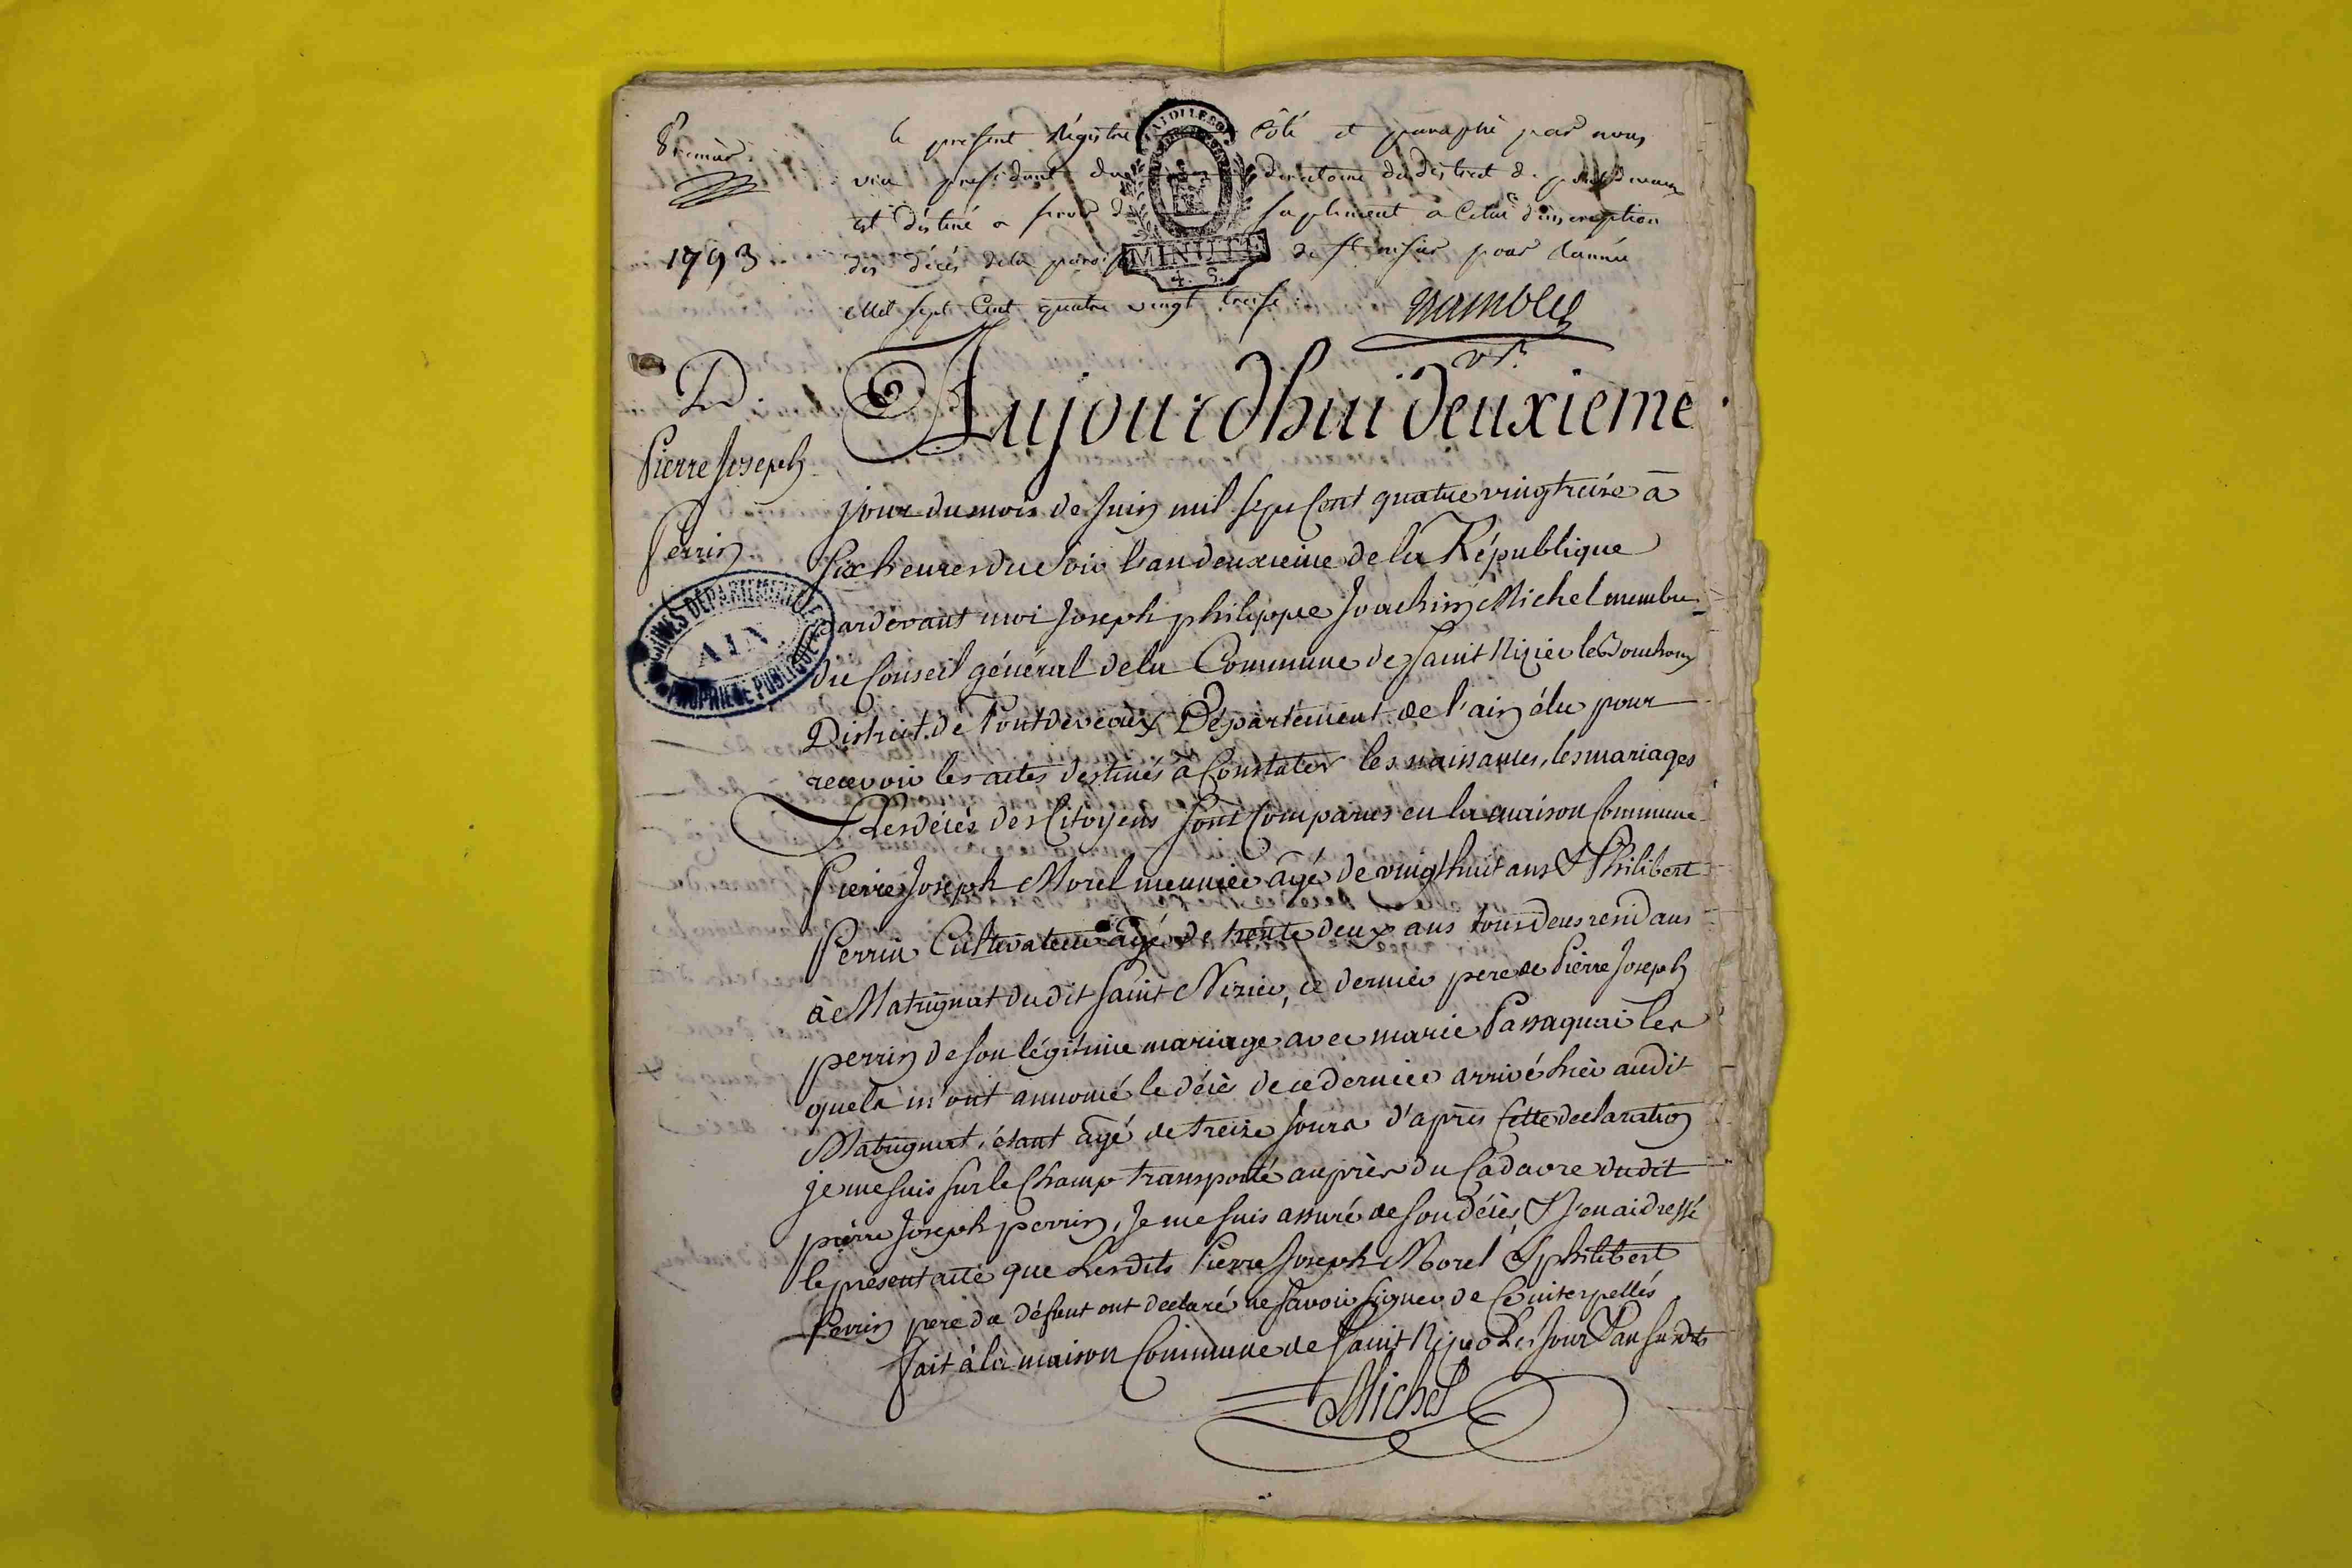 Premier
le present Régistre Côté et paraphé par nous
vice president du directoire du district de pontdevaux
est déstiné a servir de supliment a Celui d'inscription
1793
des décés de la paroisse de st nisier pour l'année
Mil sept Cent quatre vingt treise.
MINUTE
4. S.
D.
Aujourdhui deuxieme
Pierre Joseph
Perrin
jour du mois de Juin mil sept Cent quatre vingt treize à
six heures du soir l'an deuxieme de la République
ARCHIVES DÉPARTEMENTALES
AIN
PROPRIÉTÉ PUBLIQUE
pardevant moi Joseph philippe Joachim Michel membre
du Conseil général de la Commune de Saint Nizier le Bouchoux
District de Pontdevaux Département de l'ain élu pour
recevoir les actes destinés à Constater les naissances, les mariages
& les décès des Citoyens sont Comparus en la maison Commune
Pierre Joseph Morel meunier âgé de vingt huit ans & Philibert
Perrin Cultivateur âgé de trente deux ans tous deus residans
à Matrignat du dit Saint Nizier, ce dernier pere de Pierre Joseph
perrin de son légitime mariage avec marie Passaquai les
quels m'ont annoncé le décès de ce dernier arrivé hier audit
Matrignat, étant âgé de treize Jours d'après Cette declaration
je me suis sur le Champ transporté auprès du Cadavre dudit
pierre Joseph perrin, Je me suis assuré de son décès, & J'en ai dressé
le présent acte que Lesdits Pierre Joseph Morel & philibert
Perrin pere du défunt ont declaré ne savoir signer de Ce interpellés
Fait à la maison Commune de Saint Nizier Les Jour & an susdits
Michel